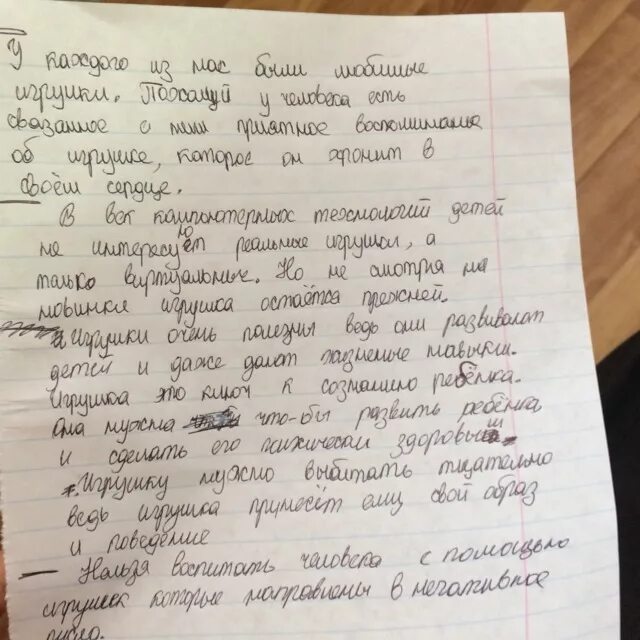 У каждого из нас были любимые
игрушки. Пожалуй у человека есть
связанное с ним приятное воспоминание
об игрушке, которое он хронит в
своём сердце.
В век компьютерных технологий детей
не интересуют реальные игрушки, а
только виртуальные. Но не смотря на
новинки игрушка остаётся прежней.
Игрушки очень полезны ведь они развивают
детей и даже делают жизненые навыки.
Игрушка это ключ к сознанию ребёнка.
Она нужна что-бы развить ребёнка
и сделать его психически здоровым.
Игрушку нужно выбитать тщательно
ведь игрушка принесёт ему свой образ
и поведение
Нельзя воспитать человека с помощью
игрушек которые направлены в негативное